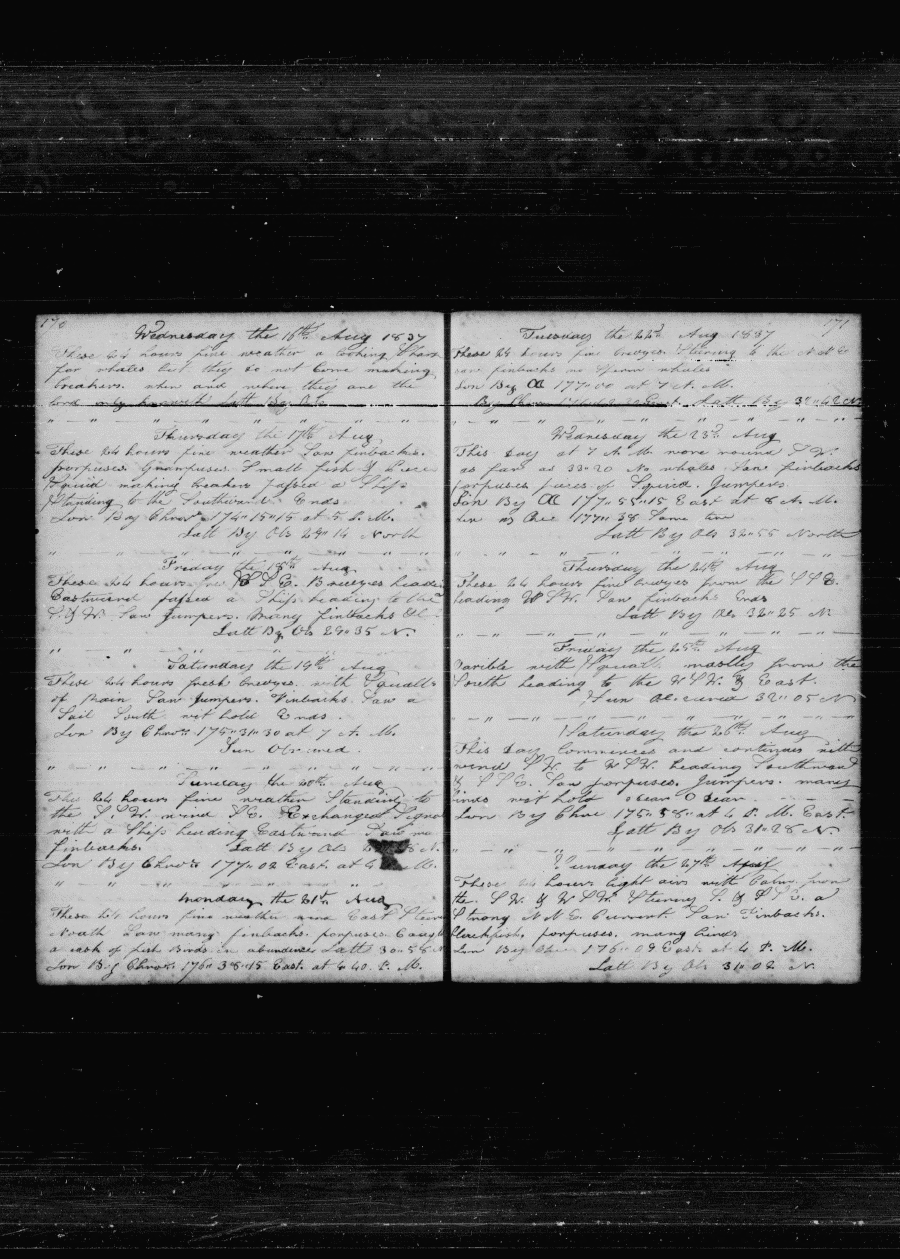 170
Wednesday the 16th Aug 1837
These 24 hours fine weather a looking Sharp
for whales but they do not Come making
breakers. when and where they are the
lord only knoweth Latt By Obs
Thursday the 17th Aug
These 24 hours fine weather Saw finbacks.
porpuses Granpuses Small fish &
Squid making breakers passed a Ship
Standing to the Southward Ends
Lon By Chro 174"15"15 at 5 P. M.
Latt By Obs 29" 14 North
Friday the 18th Aug
These 24 hours fine E.S.E. Breezes heading
Eastward passed a Ship heading to the
S. & W. Saw Jumpers. Many finbacks
Latt By Obs 29" 35 N
Saturday the 19th Aug
These 24 hours fresh breezes with Squalls
of Rain Saw Jumpers. Finbacks. Saw a
Sail South Ends.
Lon By Chro 175"31"30 at 7 A. M.
Sun Obscured.
Sunday the 20th Aug
This 24 hours fine weather Standing to
the S.S.W. wind S.E. Exchanged Signals
with a Ship heading Eastward Saw no
finbacks. Latt By Obs N.
Lon By Chro 177" 02 East. at M.
Monday the 21st Aug
These 24 hours fine weather wind East Steering
North Saw many finbacks. porpuses Caught
a cask of fish Birds in abundance Latt 30"58 N
Lon By Chro 176" 38"15 East. at 4 40 P. M.
171
Tuesday the 22d Aug 1837
These 24 hours fine breezes Steering to the N N E
saw finbacks no Sperm whales
Lon By 177"00 at 7 A. M.
By Chro East. Latt By 32"42 N
Wednesday the 23d Aug
This Day at 7 A. M. wore round S W.
as far as 33"20 No whales Saw finbacks
porpuses pieces of Squid. Jumpers.
Lon By 177"55"15 East at 8 A. M.
Lon as Chro 177" 38 Same time
Latt By Obs 32"55 North
Thursday the 24th Aug
These 24 hours fine breezes from the S S E.
heading W S W. Saw finbacks Ends
Latt By Obs 32"25 N
Friday the 25th Aug
Varible with Squalls mostly from the
South heading to the W S W. & East.
Sun Obscured 32"05 N
Saturday the 26th Aug
This Day Commences and continues with
wind S W. to W S W. heading Southward
& S S E. Saw porpuses. Jumpers. many
kinds O dear O dear.
Lon By Chro 175"58" at 4 P. M. East.
Latt By Obs 31"28 N
Sunday the 27th
These 24 hours light airs with Calm from
the S W. & W S W. Steering S. & S S E. a
Strong N N E. Current Saw Finbacks.
blackfish. porpuses. many birds
Lon By Chro 176"09 East at 4 P. M.
Latt By Obs 31"02 N.